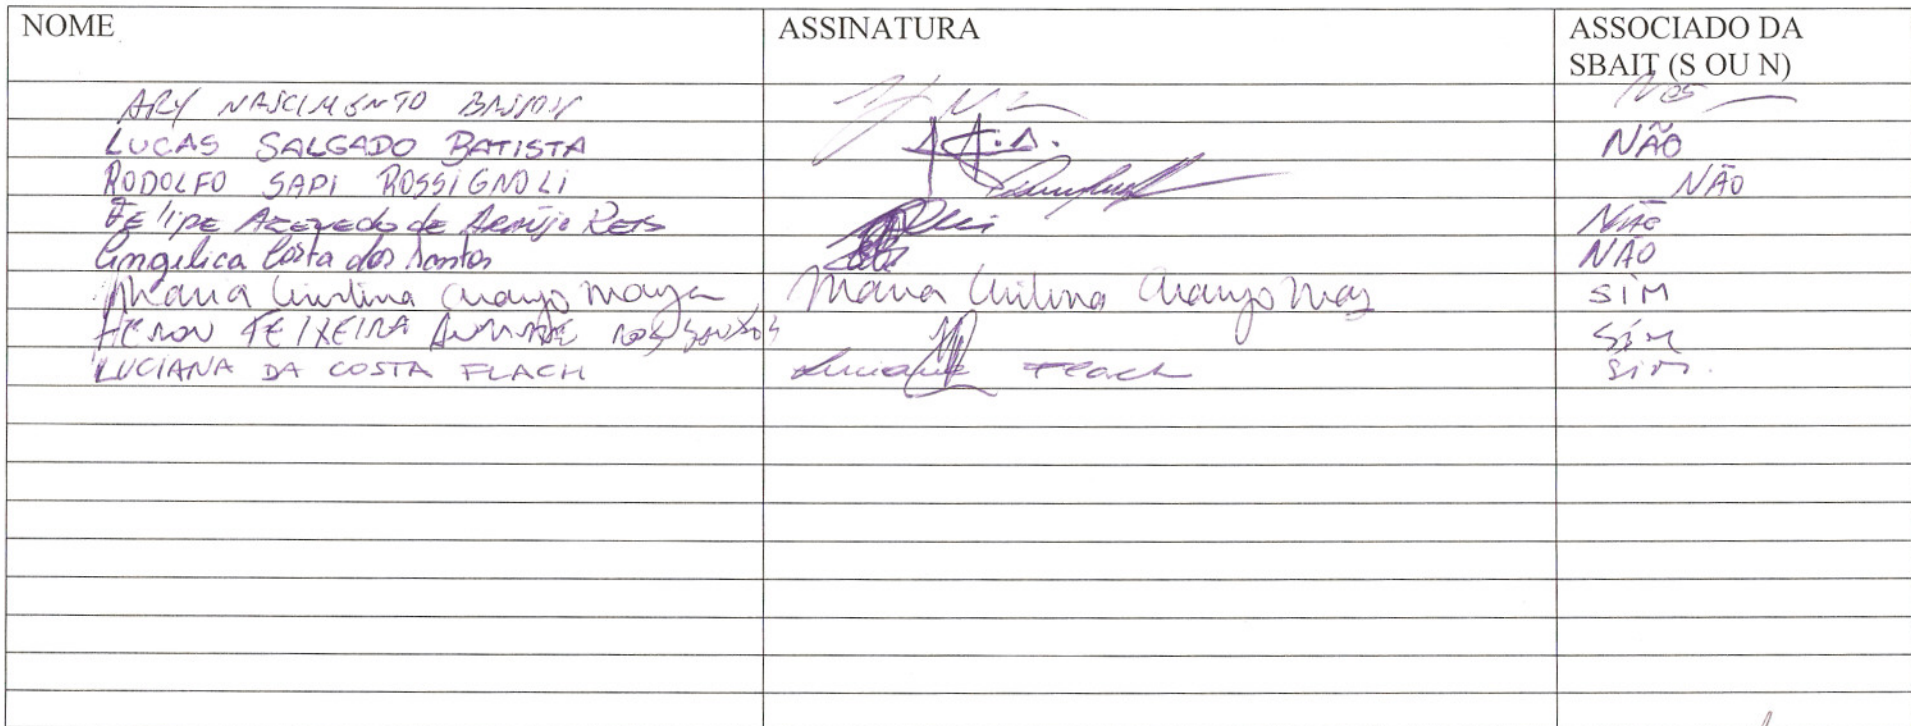 NOME ASSINATURA ASSOCIADO DA
SBAIT (S OU N)
ARY NASCIMENTO
LUCAS SALGADO BATISTA NÃO
RODOLFO SAPI ROSSIGNOLI NÃO
Felipe Azevedo de Araújo Reis NÃO
Angelica Costa dos Santos NÃO
Maria Cristina Araujo Maya Maria Cristina Araujo May SIM
TEIXEIRA SIM
LUCIANA DA COSTA FLACH Luciana Flach SIM.